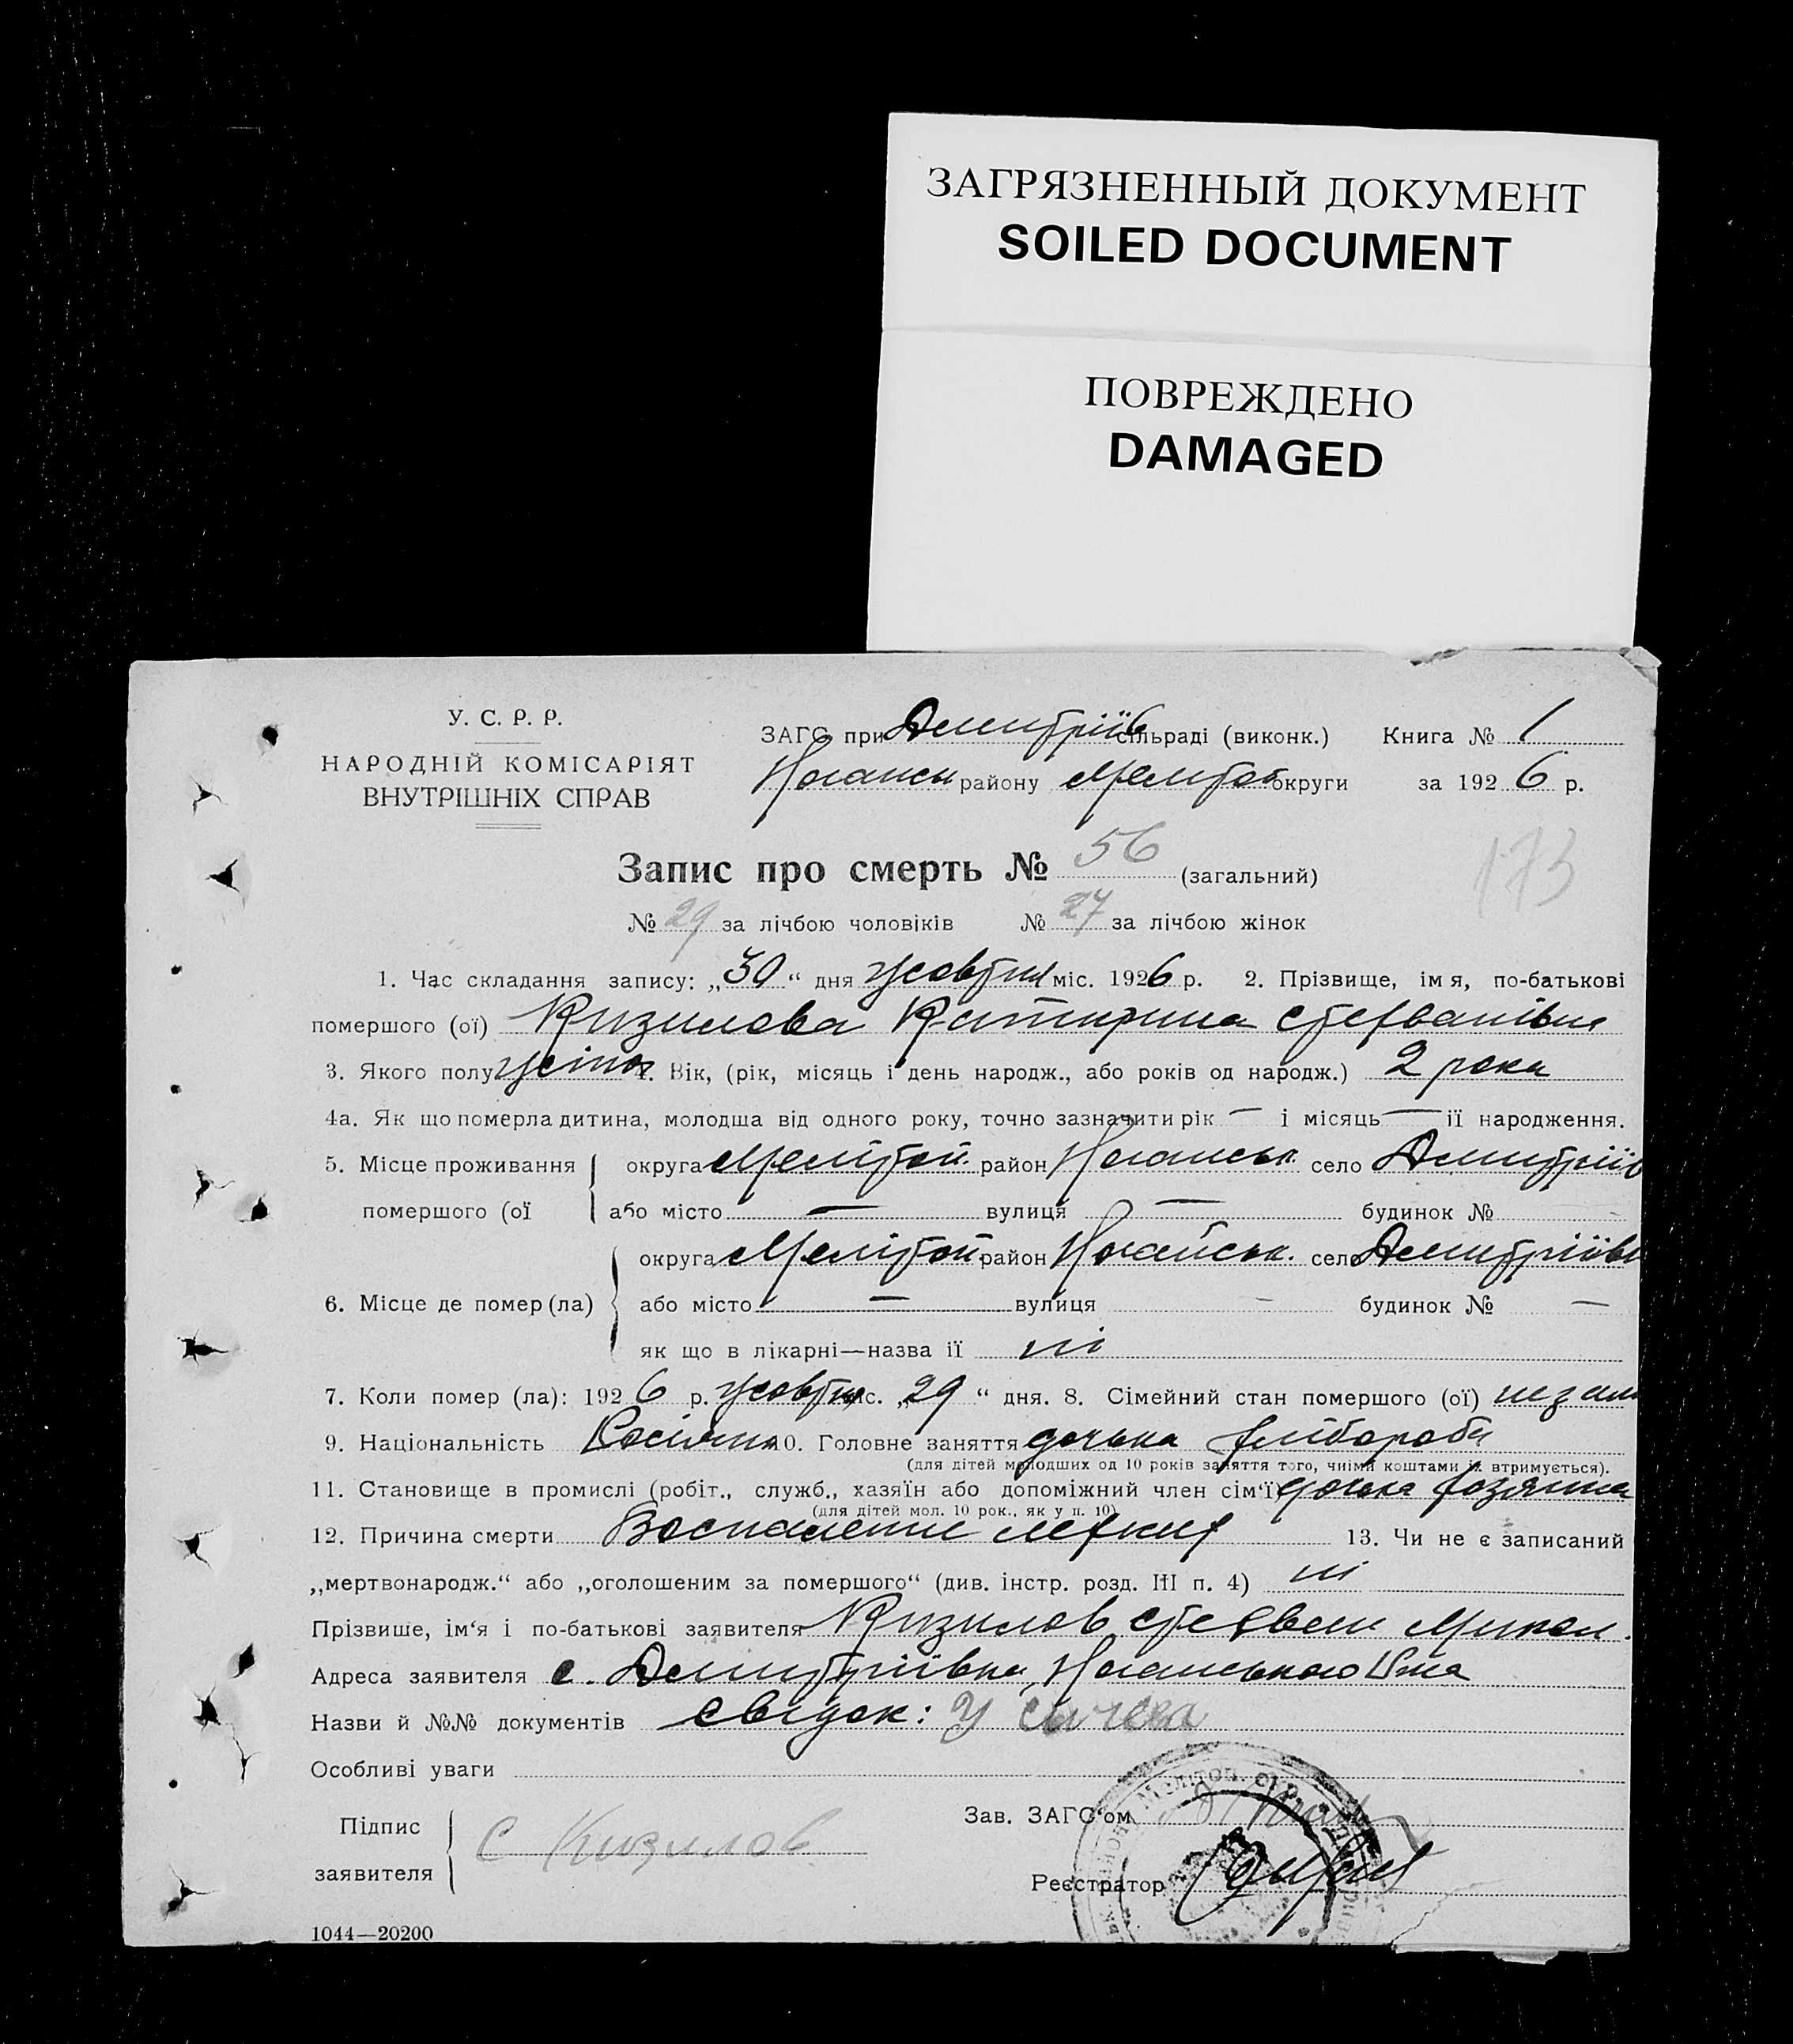 ЗАГРЯЗНЕННЫЙ ДОКУМЕНТ
SOILED DOCUMENT
ПОВРЕЖДЕНО
DAMAGED
У. С. Р. Р.
НАРОДНІЙ КОМІСАРІЯТ
ВНУТРІШНІХ СПРАВ
ЗАГС при Дмитріїв сільраді (виконк.) Книга № 1
району Мелітоп округи за 1926 р.
Запис про смерть № 56 (загальний)
173
№ 29 за лічбою чоловіків № 27 за лічбою жінок
1. Час складання запису: „30“ дня жовтня міс. 1926 р. 2. Прізвище, імя, по-батькові
помершого (ої) Кизилова Катирина Стефванівна
3. Якого полу жіноч 4. Вік, (рік, місяць і день народж., або років од народж.) 2 роки
4а. Як що померла дитина, молодша від одного року, точно зазначити рік — і місяць — її народження.
5. Місце проживання округа Мелітоп. район Ногайськ. село Дмитріїв
помершого (ої або місто — вулиця — будинок №
округа Мелітоп район Ногайськ. село Дмитріївк
6. Місце де помер (ла) або місто — вулиця — будинок № —
як що в лікарні—назва її ні
7. Коли помер (ла): 1926 р. жовтня міс. „29“ дня. 8. Сімейний стан помершого (ої)
9. Національність Росіянка 10. Головне заняття дочька хлібороба
(для дітей молодших од 10 років заняття того, чиїми коштами їх втримується).
11. Становище в промислі (робіт., служб., хазяїн або допоміжний член сім‘ї дочька хозяина
(для дітей мол. 10 рок., як у п. 10)
12. Причина смерти Воспаление легких 13. Чи не є записаний
„мертвонародж.“ або „оголошеним за помершого“ (див. інстр. розд. III п. 4) ні
Прізвише, ім‘я і по-батькові заявителя Кизилов Стефван Микол.
Адреса заявителя с. Дмитріївка Ногайського
Назви й №№ документів свідок: У Сычева
Особливі уваги
Підпис
заявителя
С Кизилов
Зав. ЗАГС‘ом
Реєстратор
1044—20200